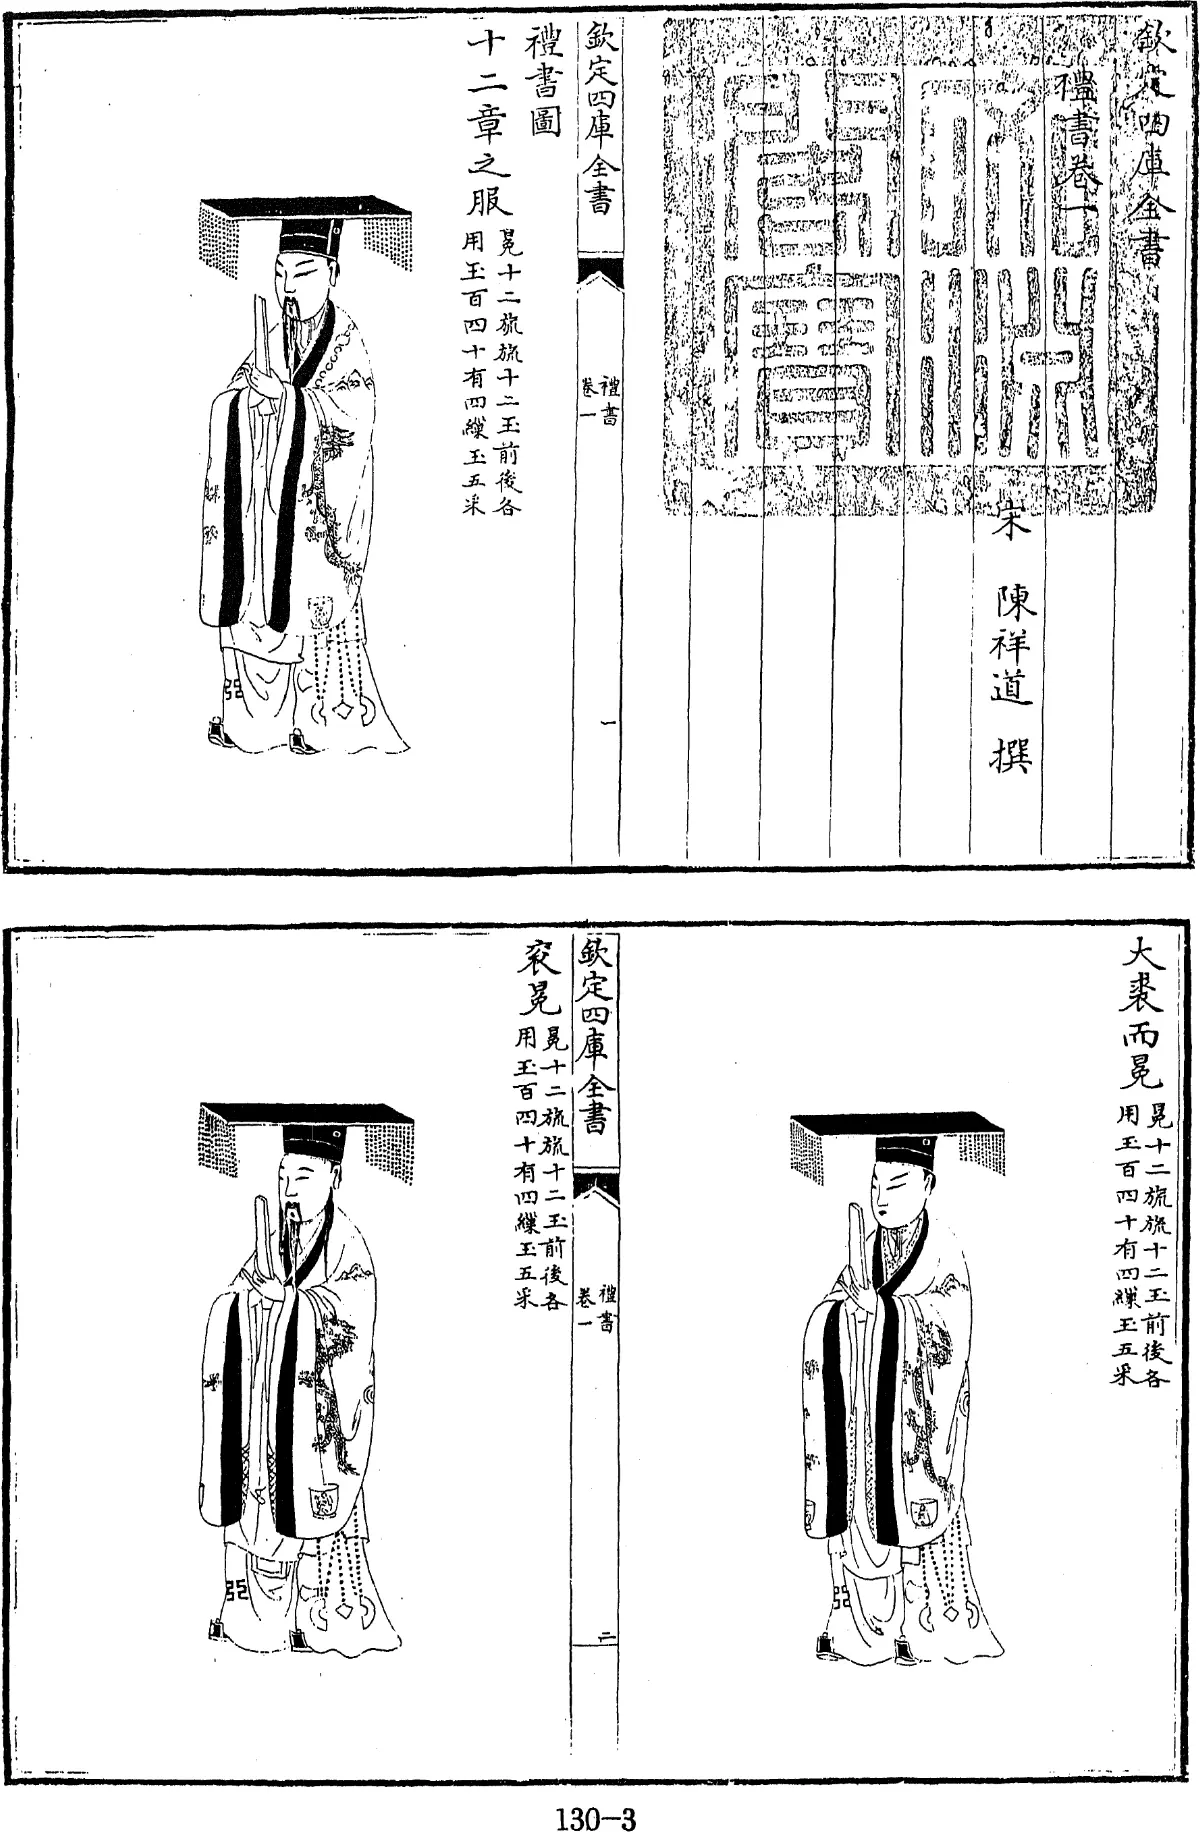 欽定四庫全書
禮書卷一
宋 陳祥道 撰
欽定四庫全書
禮書
卷一
一
禮書圖
十二章之服
冕十二旒旒十二玉前後各
用玉百四十有四繅玉五采
大裘而冕
冕十二旒旒十二玉前後各
用玉百四十有四繅玉五采
欽定四庫全書
禮書
卷一
二
袞冕
冕十二旒旒十二玉前後各
用玉百四十有四繅玉五采
130-3